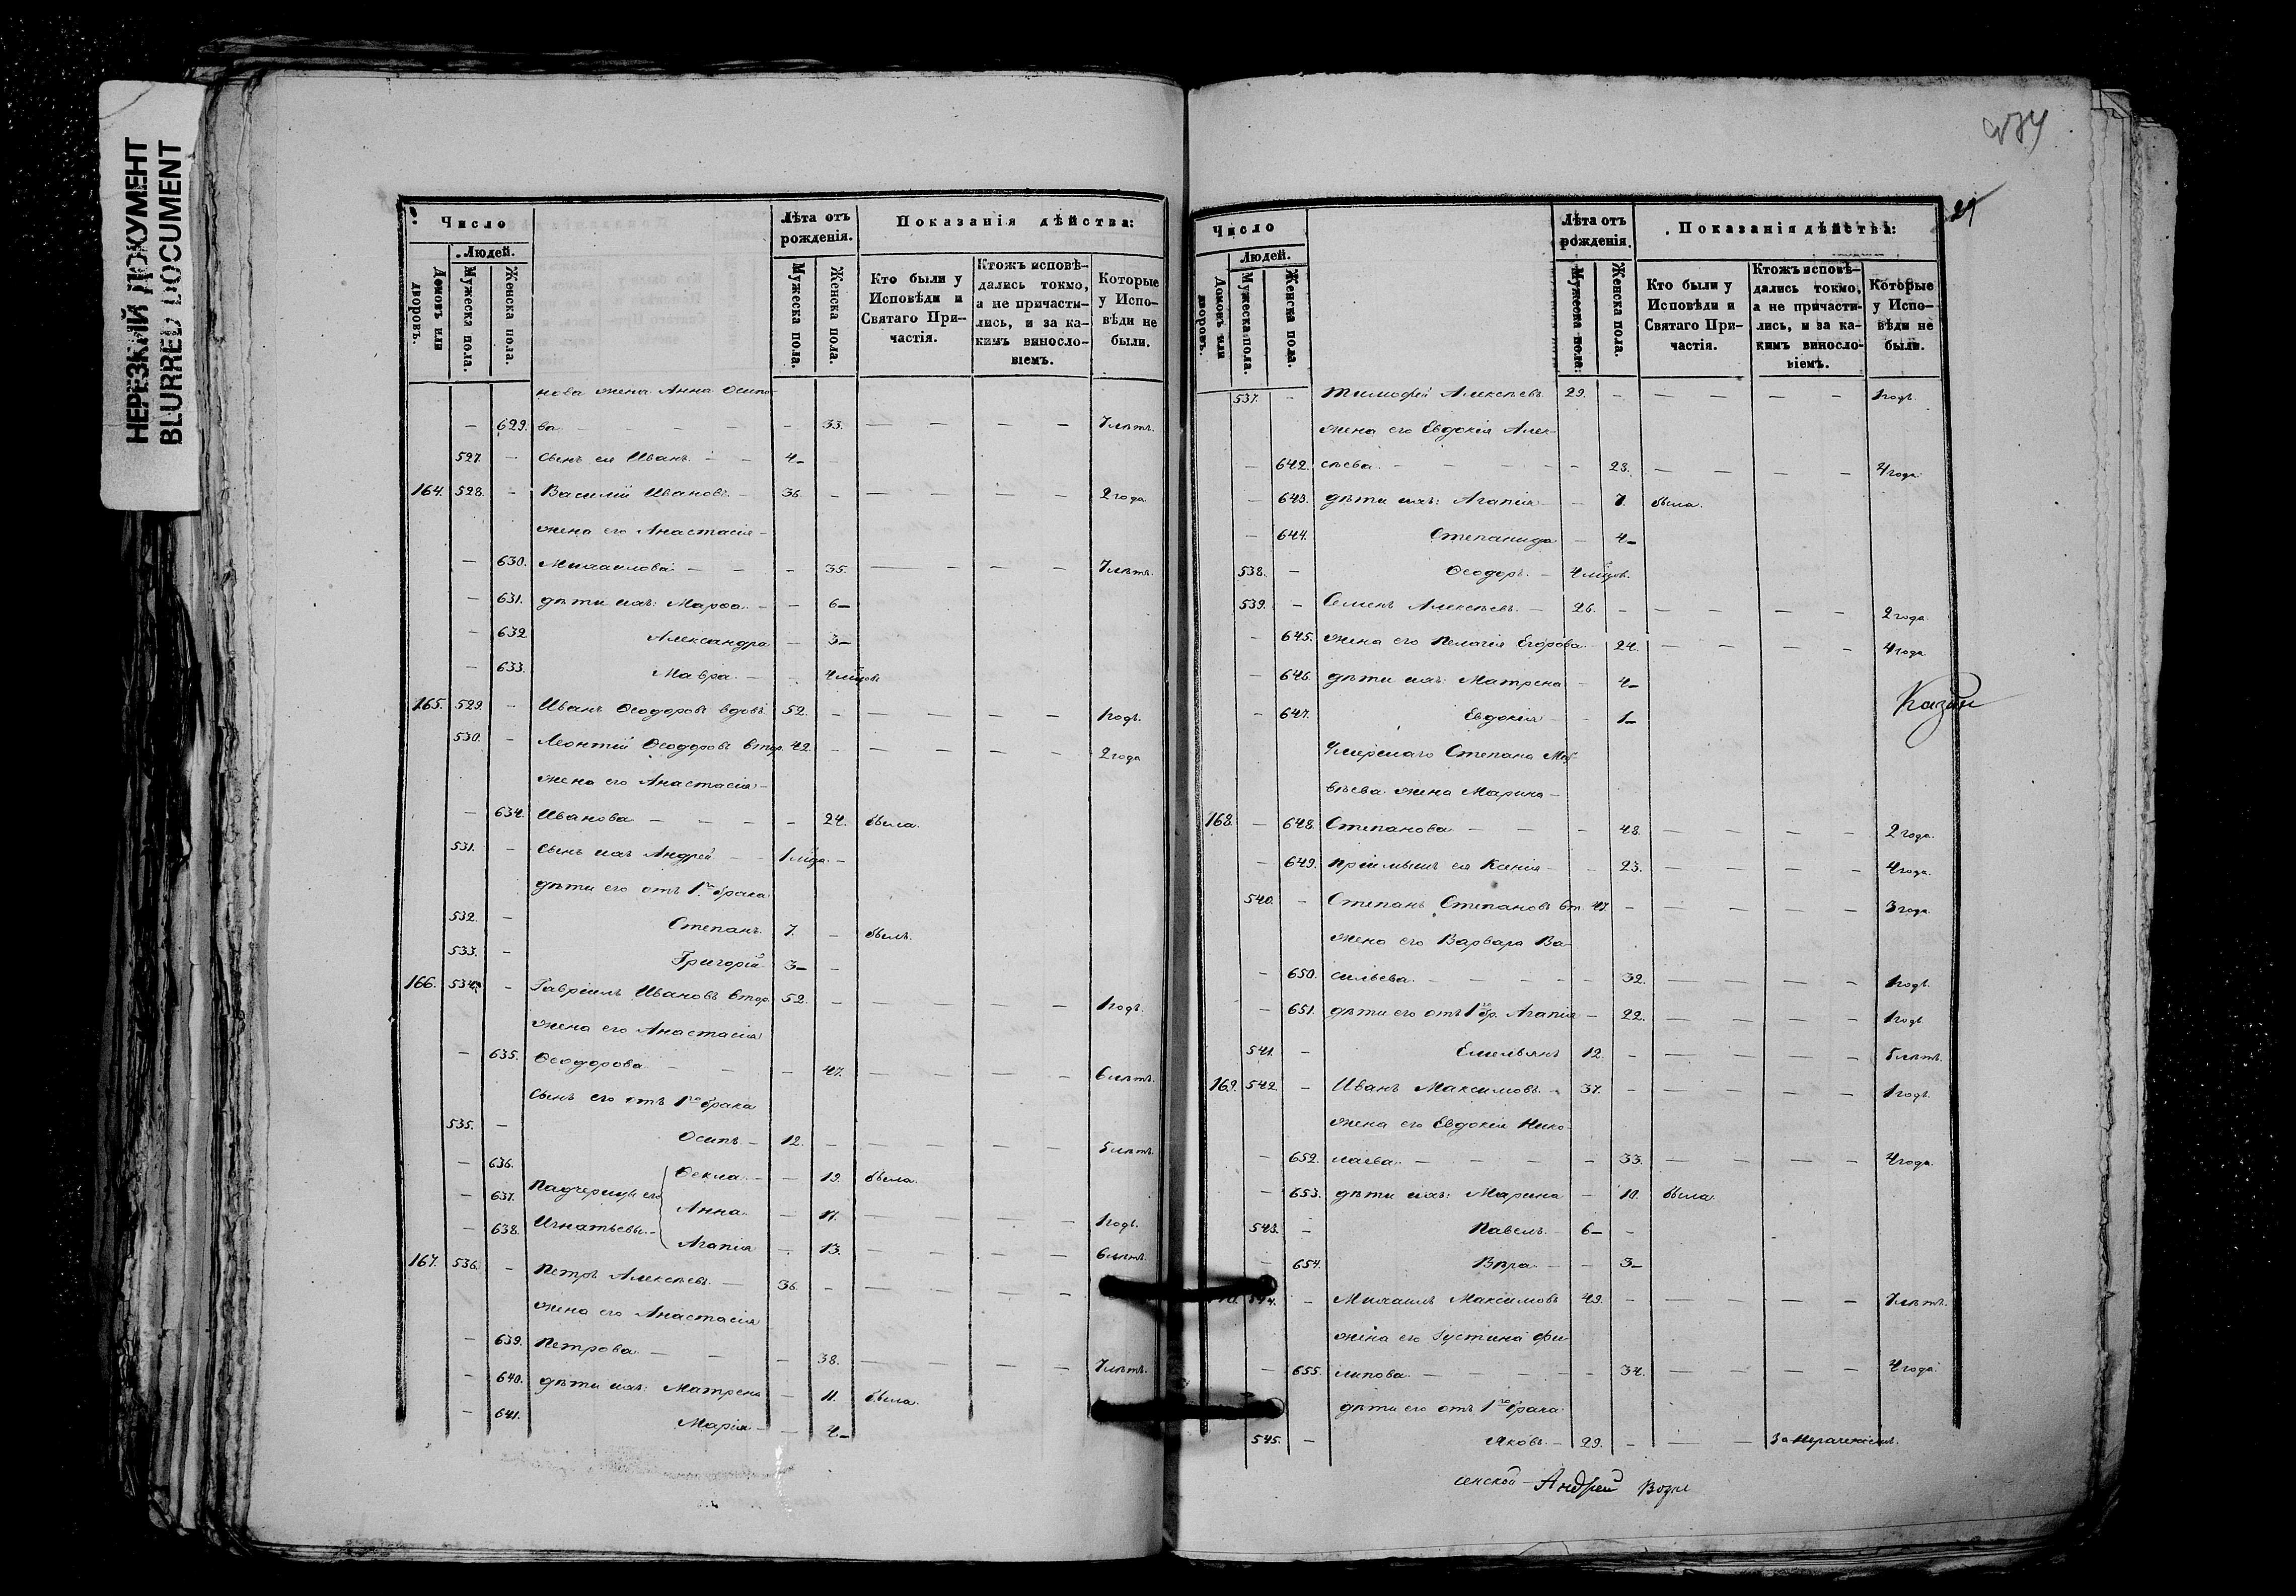 НЕРЕЗКИЙ ДОКУМЕНТ
BLURRED DOCUMENT
Число
Людей.
Домовъ или дворовъ.
Мужеска пола.
Женска пола.
Лѣта отъ рожденія.
Мужеска пола.
Женска пола.
Показанія дѣйства:
Кто были у Исповѣди и Святаго Причастія.
Ктожъ исповѣдались токмо, а не причастились, и за какимъ винословіемъ.
Которые у Исповѣди не были.
нова жена Анна Осипо
— 629. ва — — — — — 33. — — — — 7 лѣтъ.
527. — Сынъ ея Иванъ — — 4 —
164. 528. — Василій Ивановъ — 36. — — — — — 2 года
жена его Анастасія —
— 630. Михаилова — — — 35. — — — — 7 лѣтъ.
— 631. дѣти ихъ: Марѳа — — 6 —
— 632 Александра — 3 —
— 633. Мавра — — 4 мѣсцовъ
165. 529. — Иванъ Ѳеодоровъ вдовъ 52. — — — — — 1 годъ.
530. — Леонтій Ѳеодоровъ втор. 42. — — — — — 2 года
жена его Анастасія —
— 634. Иванова — — — — 24. была.
531. — Сынъ ихъ Андрей — — 1 мѣсца —
дѣти его отъ 1го брака
532. — Степанъ 7. — былъ.
533. — Григорій 3 — —
166. 534. — Гавріилъ Ивановъ втор. 52. — — — — — 1 годъ.
жена его Анастасія
— 635. Ѳеодорова — — — — 47. — — — — 6 лѣтъ.
Сынъ его отъ 1го брака
535. — Осипъ — 12. — — — — — 5 лѣтъ.
— 636. Ѳекла — — 19. была.
— 637. Падчерицы его Анна — — 17. — — — — 1 годъ.
— 638. Игнатьевы — Агапія — 13. — — — — 6 лѣтъ.
167. 536. — Петръ Алексѣевъ — 36. — — — — —
жена его Анастасія
— 639. Петрова — — — — 38. — — — — 7 лѣтъ.
— 640. дѣти ихъ: Матрена — 11. была.
— 641. Марія — — 4 —
Число
Людей.
Домовъ или дворовъ.
Мужеска пола.
Женска пола.
Лѣта отъ рожденія.
Мужеска пола.
Женска пола.
Показанія дѣйства:
Кто были у Исповѣди и Святаго Причастія.
Ктожъ исповѣдались токмо, а не причастились, и за какимъ винословіемъ.
Которые у Исповѣди не были.
537. — Тимофей Алексѣевъ 29. — — — — — 1 годъ.
жена его Евдокія Алек-
— 642. сѣева — — — — — 28. — — — — 4 года
— 643. дѣти ихъ: Агапія — — 7. была.
— 644. Степанида — 4 —
538. — Ѳеодоръ — 4 мѣсцов.
539. — Семенъ Алексѣевъ — 26. — — — — — 2 года
— 645. жена его Пелагія Егорова — 24. — — — — 4 года
— 646. дѣти ихъ: Матрена — 4 —
— 647. Евдокія — — 1 —
Умершаго Степана Мат
вѣева жена Марина —
168. — 648. Степанова — — — 48. — — — — 2 года.
— 649. пріимышъ ея Ксенія — — 23. — — — — 4 года.
540. — Степанъ Степановъ вт. 47. — — — — — 3 года
жена его Варвара Ва-
— 650. сильева — — — — — 32. — — — — 1 годъ.
— 651. дѣти его отъ 1го бр. Агапія — 22. — — — — 1 годъ
541. — Емельянъ 12. — — — — — 5 лѣтъ.
169. 542. — Иванъ Максимовъ — 37. — — — — — 1 годъ.
жена его Евдокія Нико-
— 652. лаева — — — — — 33. — — — — 4 года.
— 653. дѣти ихъ: Марина — 10. была.
543. — Павелъ — 6 — —
— 654. Вѣра — — 3 —
544. — Михаилъ Максимовъ 49. — — — — — 7 лѣтъ.
жена его Густина Фи-
— 655. липова — — — — — 34. — — — — 4 года.
дѣти его отъ 1го брака
545. — Яковъ — 29. — — — За нераченіемъ.
сенской Андрей Возне